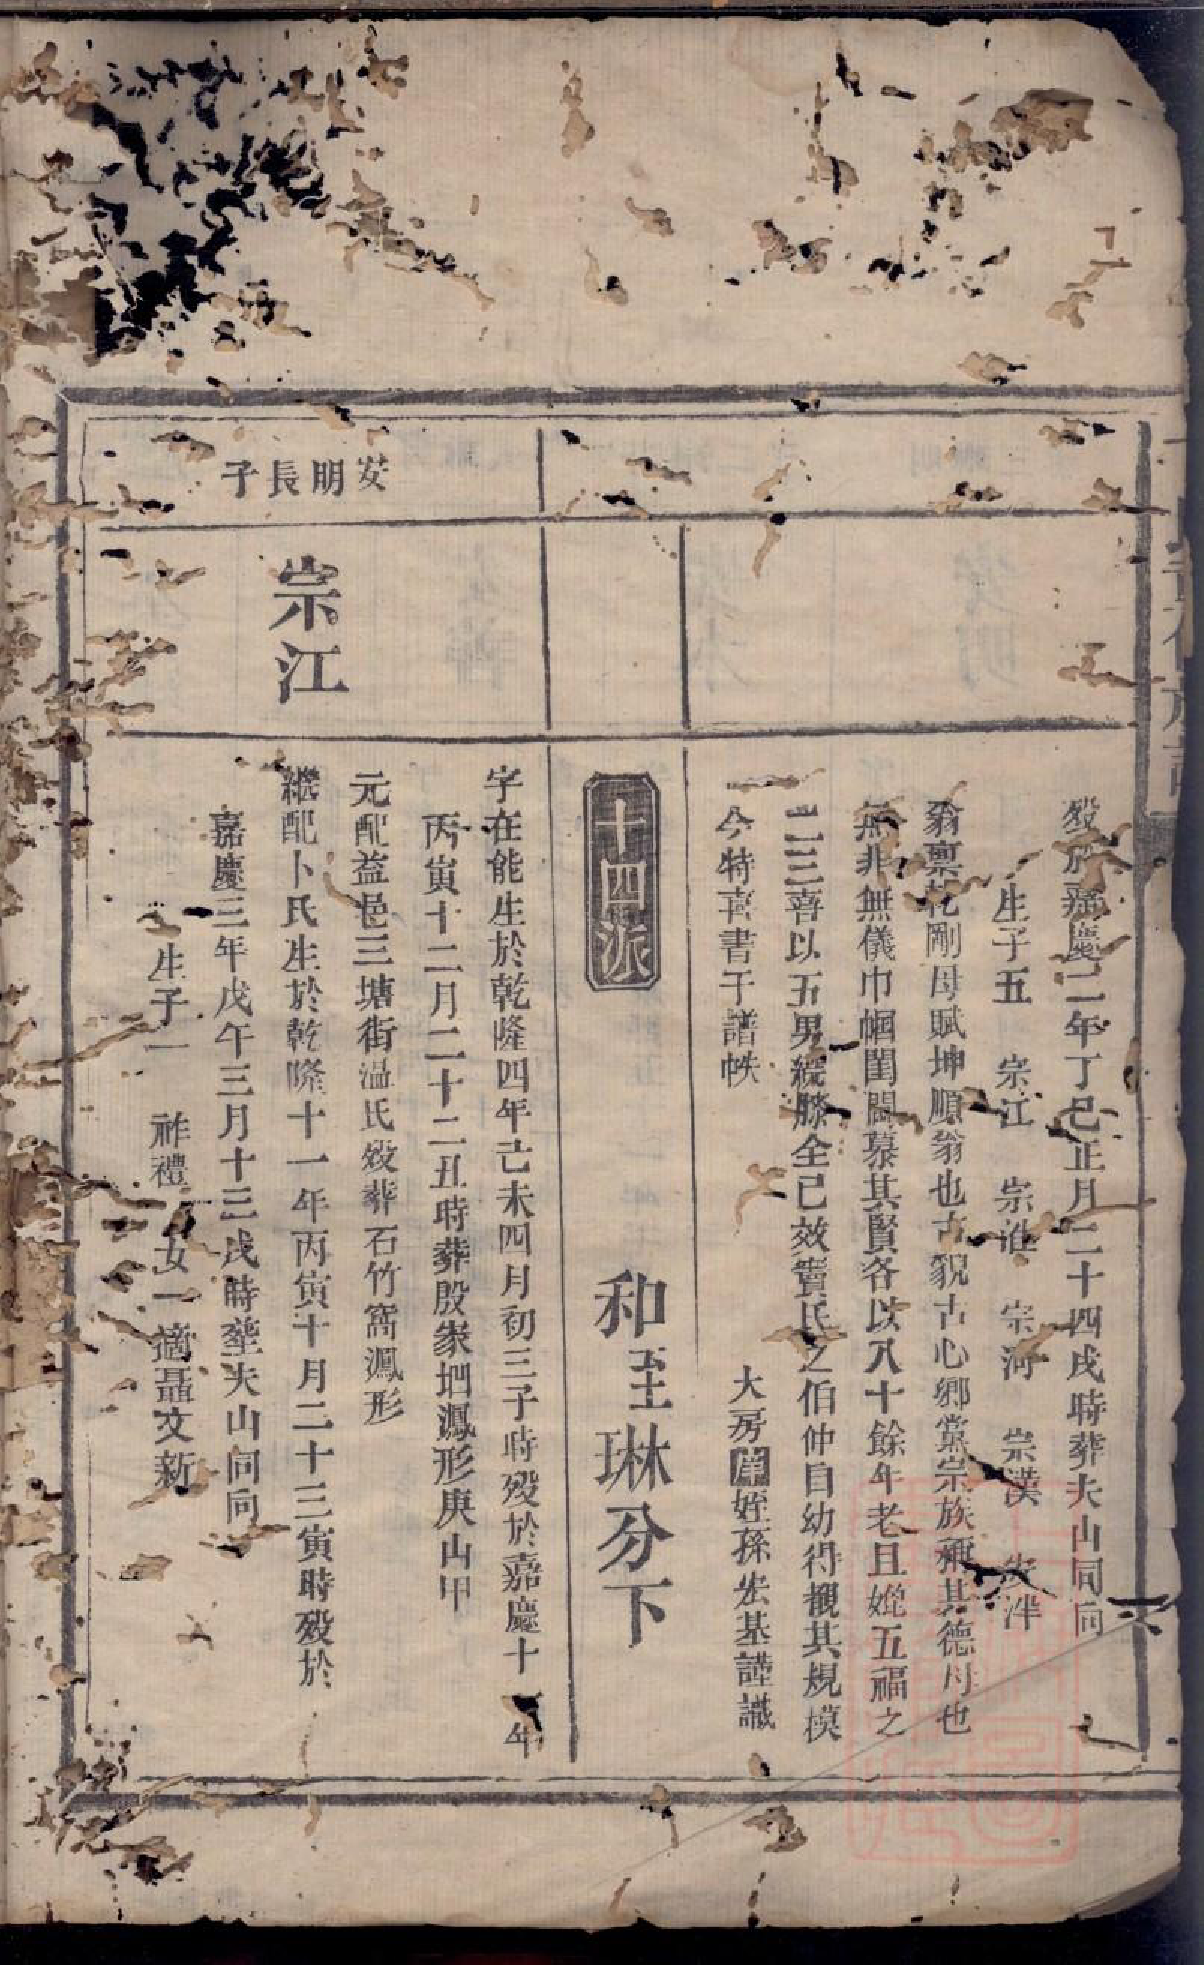 歿於嘉慶二年丁巳正月二十四戌時葬夫山同向
生子五　宗江　宗淮　宗河　宗漢　安泮
翁稟乾剛母賦坤順翁也古貌古心鄉黨宗族稱其德母也
無非無儀巾幗閨閫慕其賢各以八十餘年老且娩五福之
二三喜以五男繞膝全已效竇氏之伯仲自幼得觀其規模
今特喜書于譜帙
大房 姪孫宏基謹識
十四派
和至琳分下
安明長子
宗江
字在能生於乾隆四年己未四月初三子時歿於嘉慶十 年
丙寅十二月二十二丑時葬殷家 鳳形庚山甲
元配益邑三塘街溫氏歿葬石竹窩鳳形
繼配卜氏生於乾隆十一年丙寅十月二十三寅時歿於
嘉慶三年戊午三月十三戌時塟夫山同向
生子一　祚禮　女一適聶文新